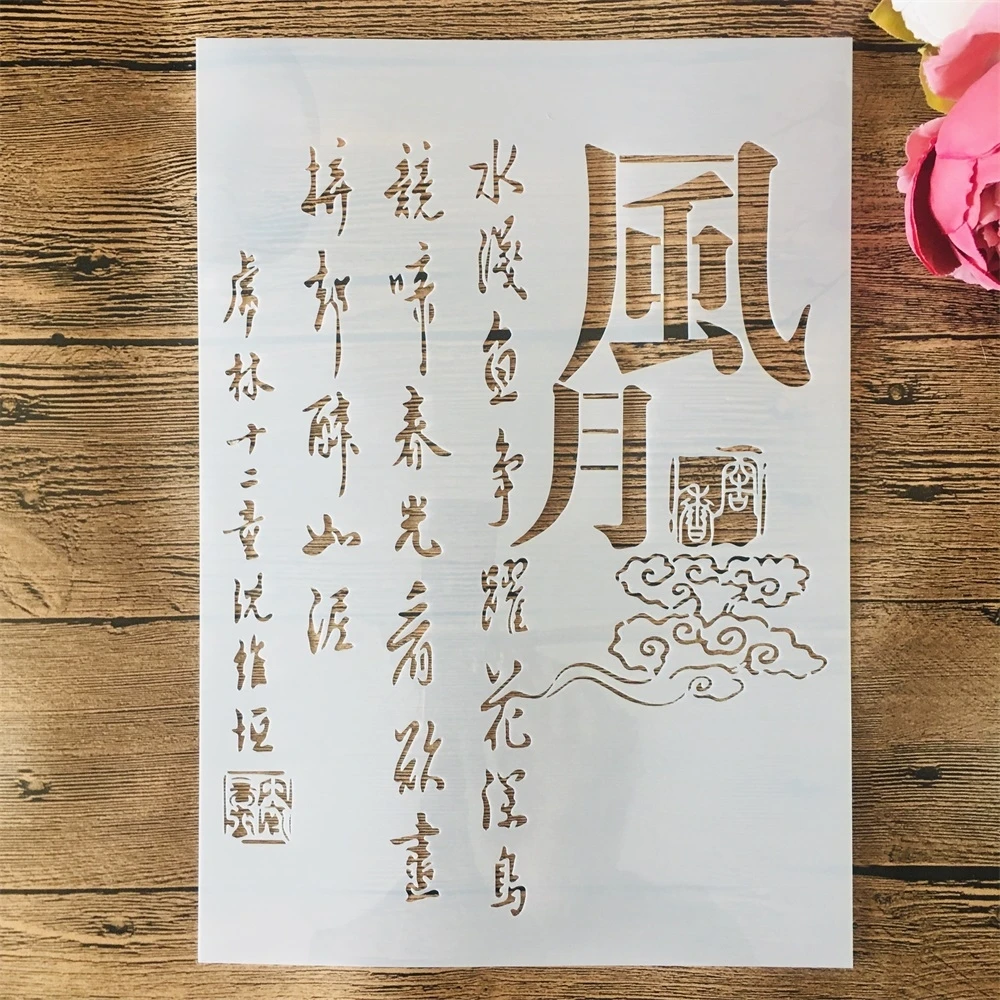 風月
水淺魚爭躍花深鳥
競啼春光看欲盡
拚却醉如泥
虎林十二童沈維垣